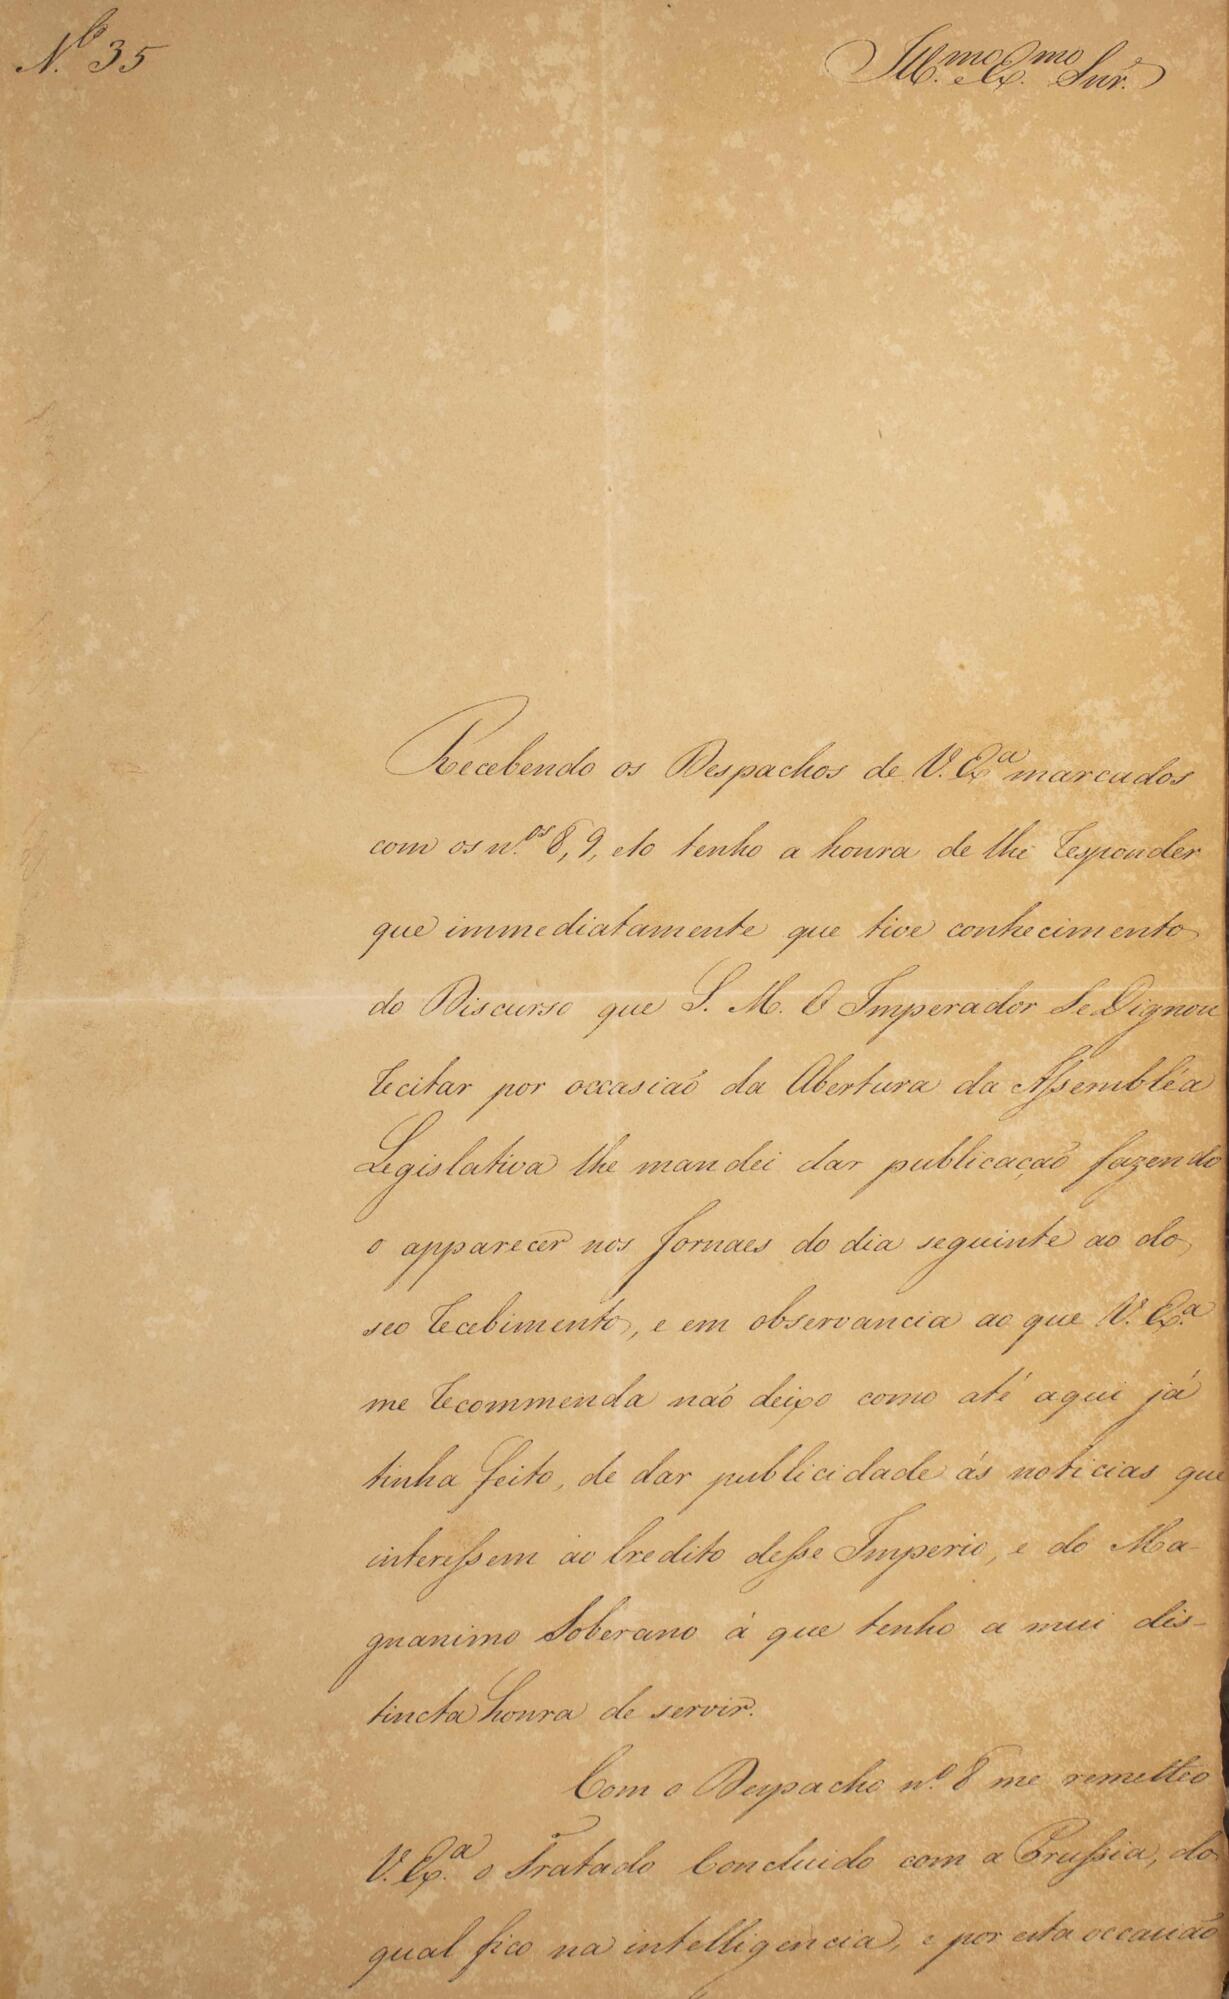 N.º 35
Ill.mo e Ex.mo Snr.
Recebendo os Despachos de V. Ex.a marcados
com os n.os 8, 9, e 10 tenho a honra de lhe responder
que immediatamente que tive conhecimento
do Discurso que S. M. O Imperador Se Dignou
recitar por occasiaõ da Abertura da Assembléa
Legislativa lhe mandei dar publicaçaõ fazendo
o apparecer nos Jornaes do dia seguinte ao do
seo recebimento, e em observancia ao que V. Ex.a
me recommenda naõ deixo como até aqui já
tinha feito, de dar publicidade ás noticias que
interessem ao Credito desse Imperio, e do Ma-
gnanimo Soberano á que tenho a mui dis-
tincta honra de servir.
Com o Despacho n.º 8 me remetteo
V. Ex.a o Tratado Concluido com a Prussia, do
qual fico na intelligencia, e por esta occasiaõ